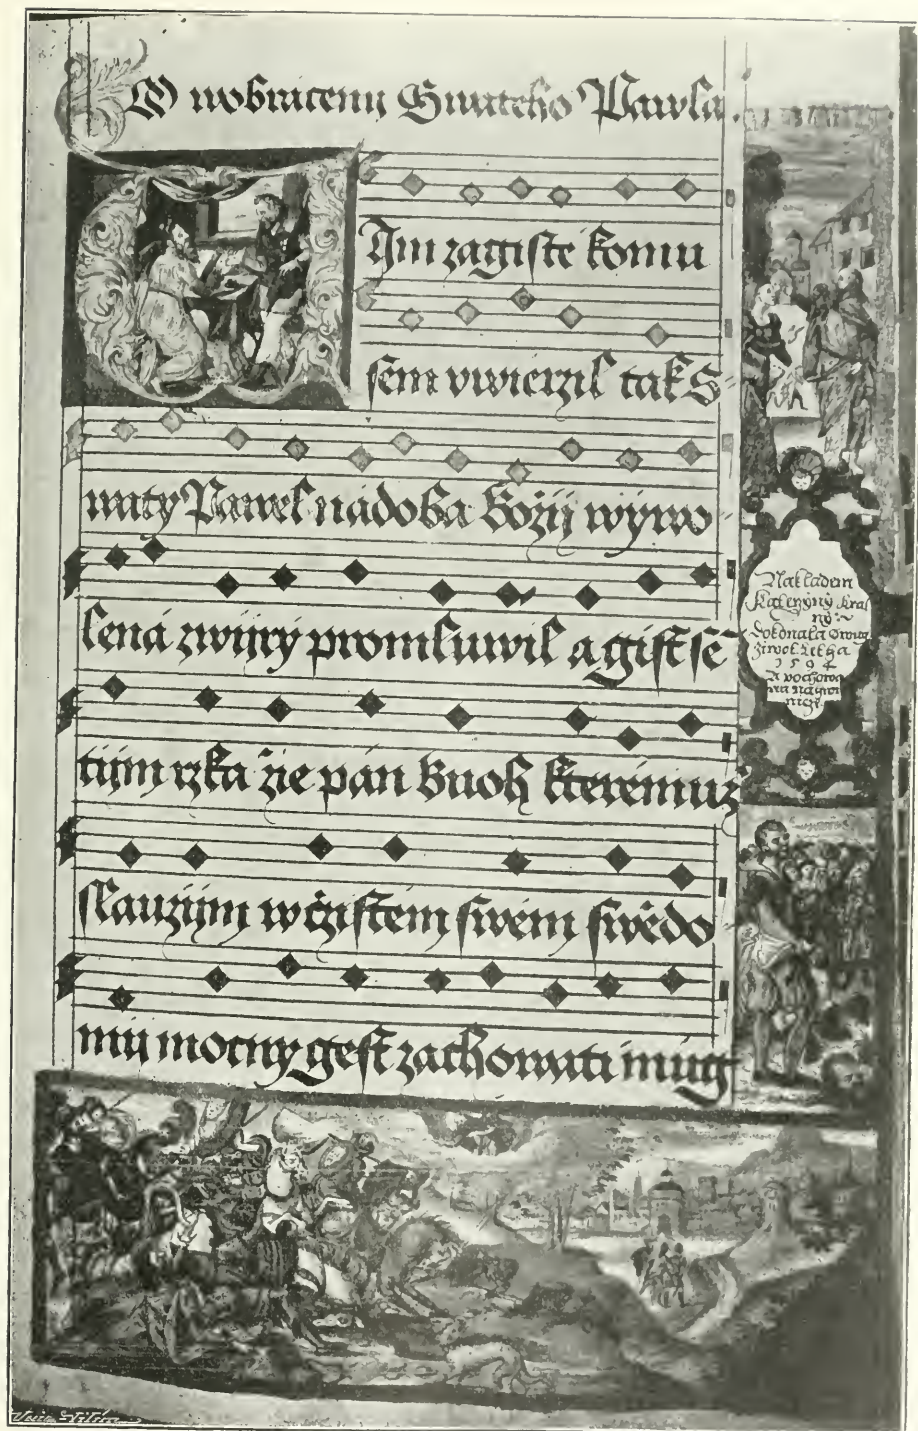 O wobráceny Swateho Pawla.
Im zagiste komu
sem vwierzil tak S
waty Pawel nádoba Božij wywo
lená zwijry promluwil a gist sě
tijm rzka žie pán Buoh kteremuž
slaužijm w čzistem swém swědo
mij mocny gest zachowati mug
Nakladem
Kateržyny Kral
ny
dokonala
života
1594
A pochowa